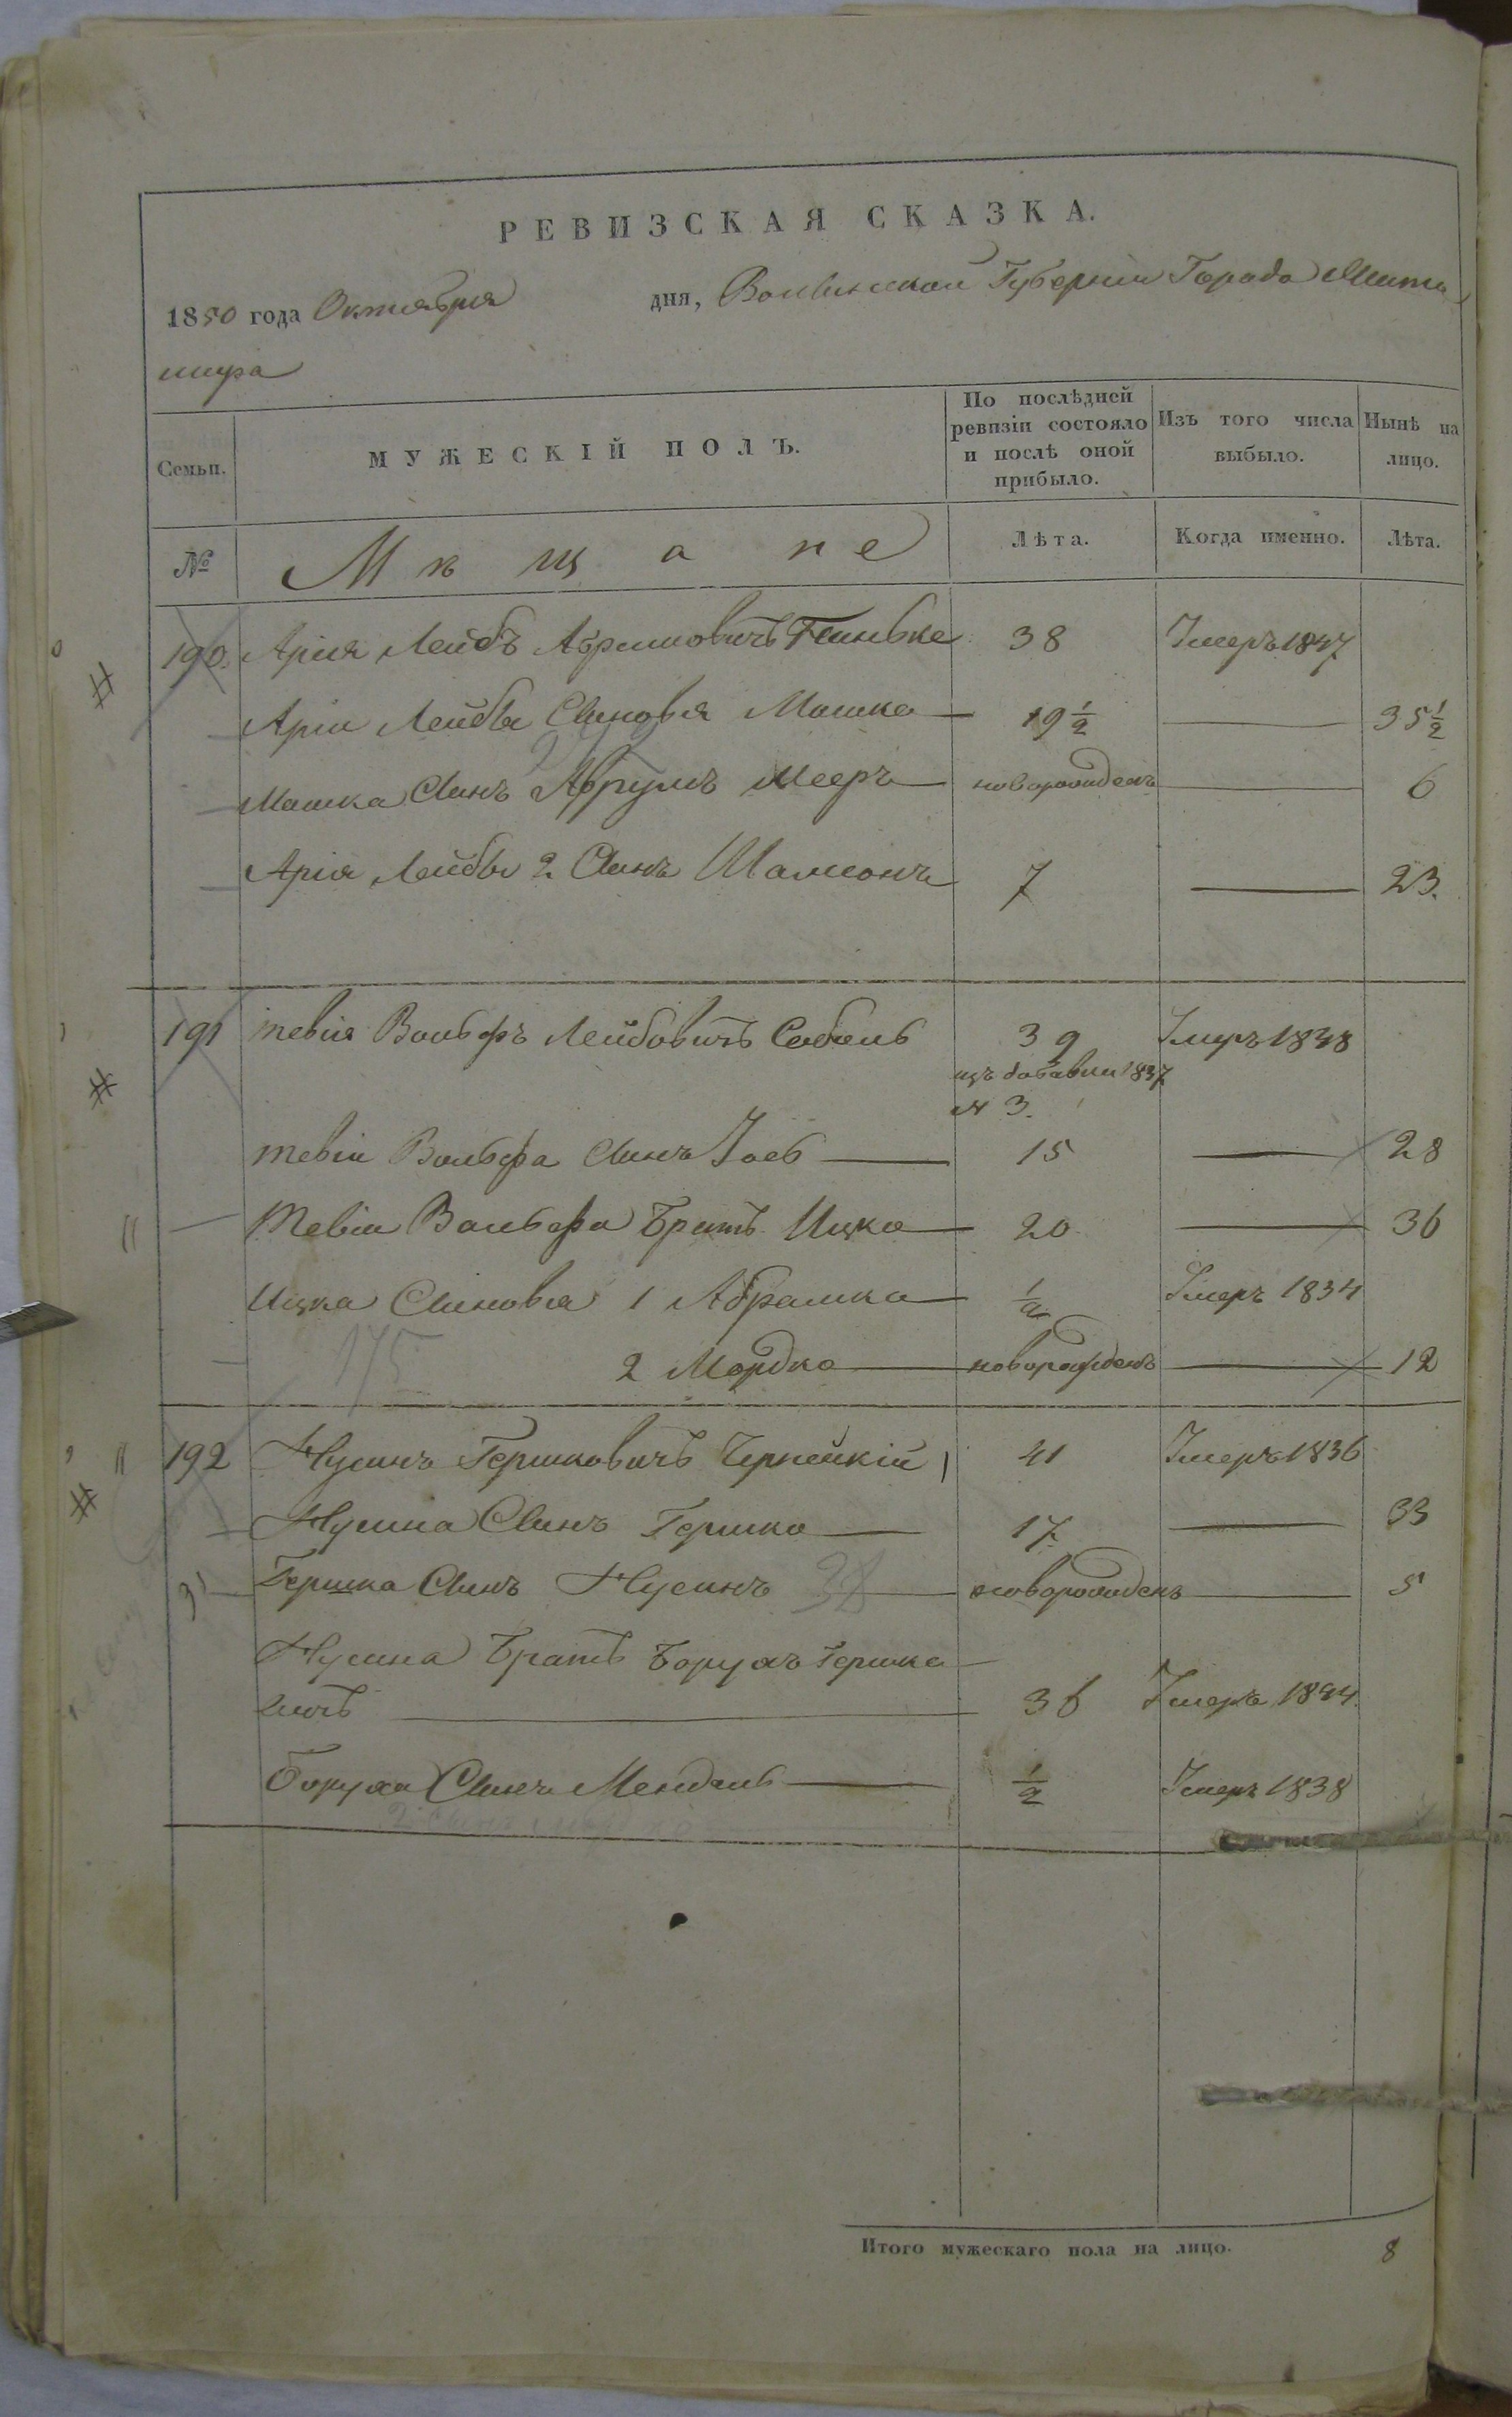 РЕВИЗСКАЯ СКАЗКА.
1850 года Октября дня, Волынской Губернiи Города Жито
мира
Семьи. МУЖЕСКIЙ ПОЛЪ. По послѣдней ревизiи состояло и послѣ оной прибыло. Изъ того числа выбыло. Нынѣ на лицо.
№ Мѣщане Лѣта. Когда именно. Лѣта.
190. Арiя Лейбъ Абрамовичъ 38 Умеръ 1847
Арiи Лейбы Сыновья Мошко 19 1/2 35 1/2
Мошка Сынъ Аврумъ Мееръ новорожденъ 6
Арiя Лейбы 2 Сынъ Шамсонъ 7 23.
191 Тевiя Вольфъ Лейбовичъ Соболь 39 Умеръ 1838
изъ добавки 1837
№ 3.
Тевiи Вольфа Сынъ 15 28
Тевiи Вольфа Братъ Ицко 20 36
Ицка Сыновья 1 Абрашко 1/2 Умеръ 1834
175
2 Мордко новорожденъ 12
192 Нусинъ Гершковичъ 41 Умеръ 1836
Нусина Сынъ Гершко 17. 33
Гершка Сынъ Нусинъ новорожденъ 5
Нусина Братъ Борухъ Гершко
вичъ 36 Умеръ 1844.
Боруха Сынъ Мендель 1/2 Умеръ 1838
Итого мужескаго пола на лицо. 8